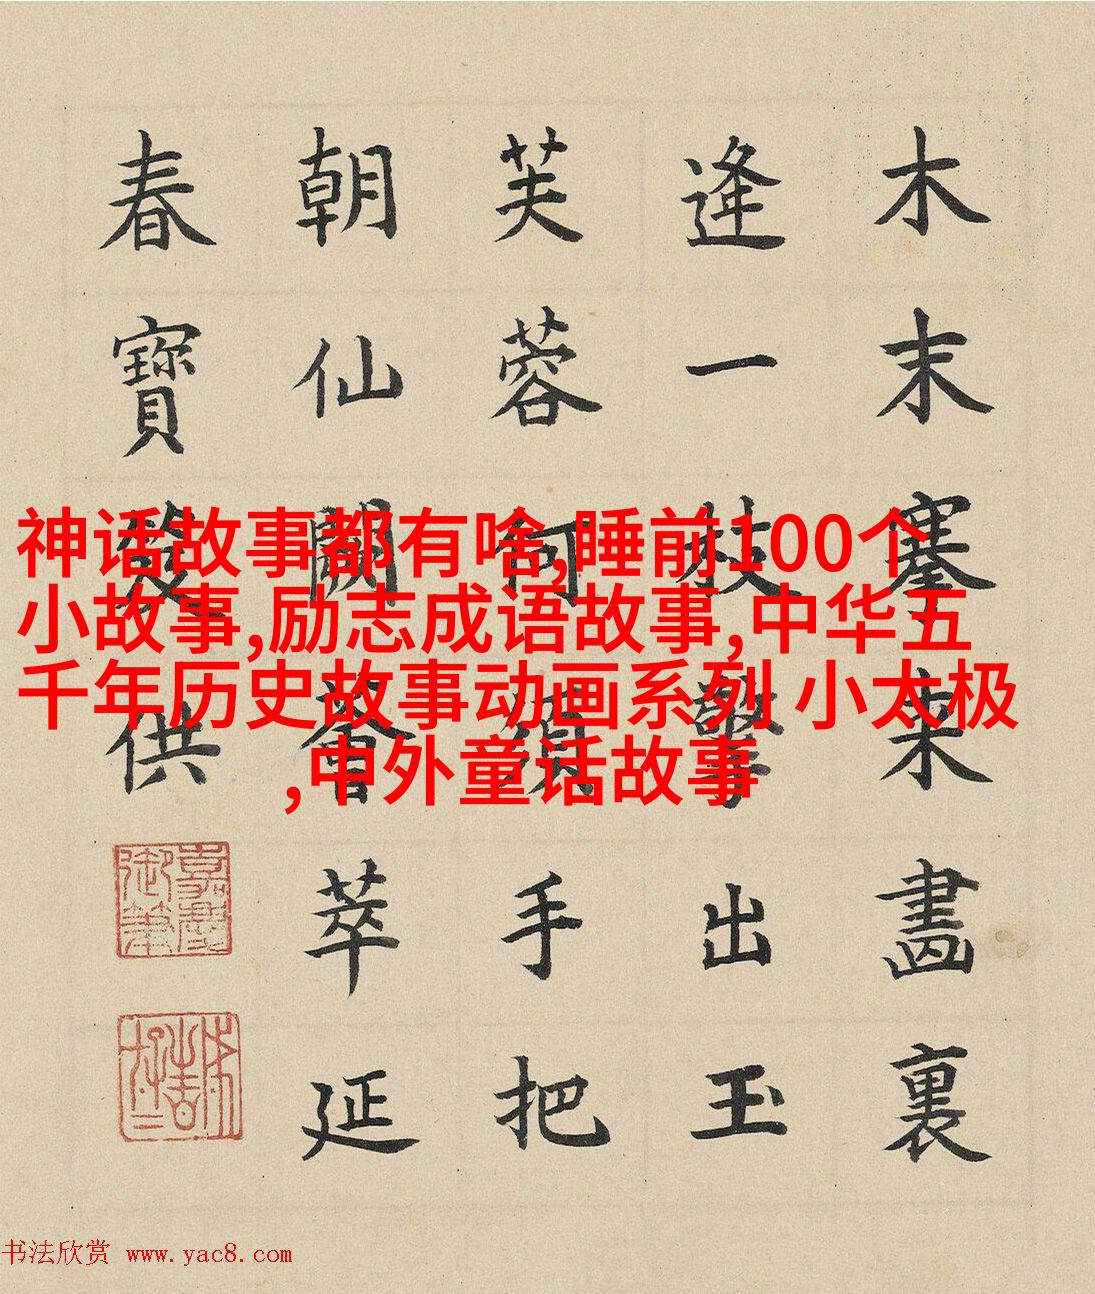 木末搴来畫裏
逢一枝擎出玉
芙蓉何須手把
朝仙闕薈萃延
春寶供
嘉慶
御筆
神话故事都有啥,睡前100个
小故事,励志成语故事,中华五
千年历史故事动画系列 小太极
,中外童话故事
书法欣赏 www.yac8.com